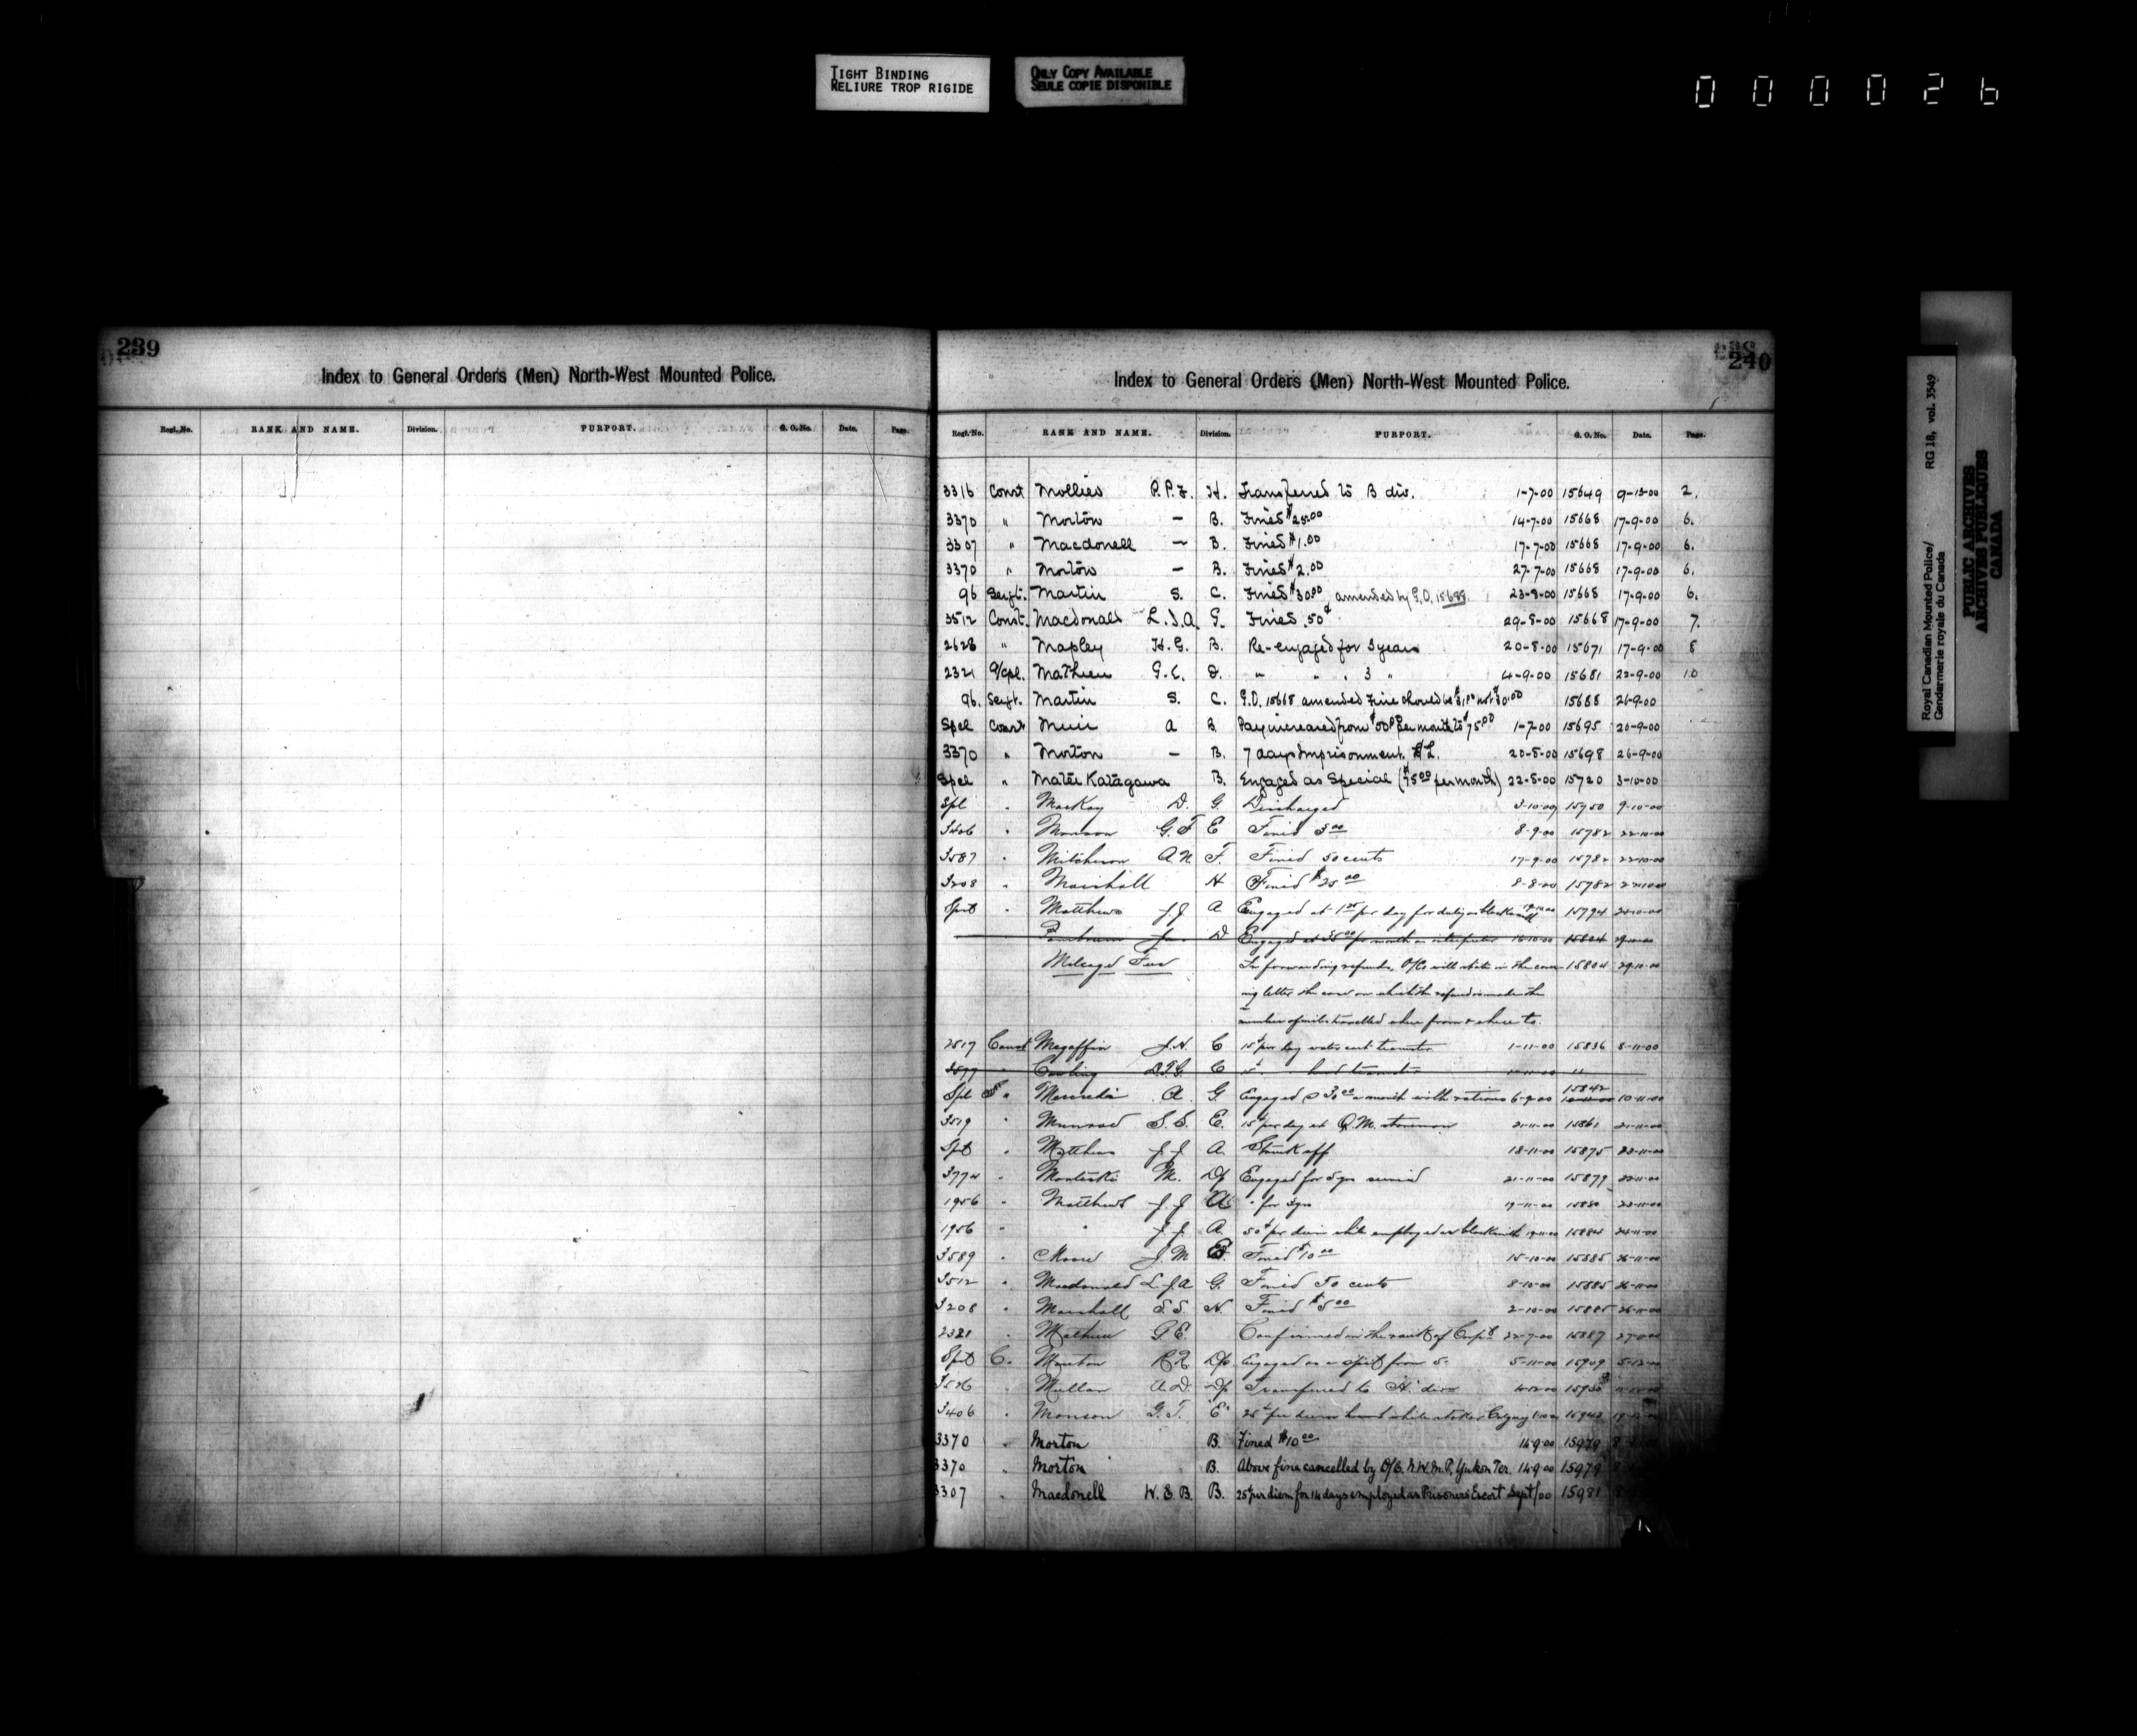 TIGHT BINDING
RELIURE TROP RIGIDE
ONLY COPY AVAILABLE
SEULE COPIE DISPONIBLE
000026
239
Index to General Orders (Men) North-West Mounted Police.
Regl. No. RANK AND NAME. Division. PURPORT. G. O. No. Date. Page.
240
Index to General Orders (Men) North-West Mounted Police.
Regl. No. RANK AND NAME. Division. PURPORT. G. O. No. Date. Page.
3316 Const Mollies P.P.F. H. Transferred to B div. 1-7-00 15649 2.
3370 " Morton — B. Fined $25.00 14-7-00 15668 17-9-00 6.
3307 " Macdonell — B. Fined $1.00 17-7-00 15668 17-9-00 6.
3370 " Morton — B. Fined $2.00 27-7-00 15668 17-9-00 6.
96 Sergt. Martin S. C. Fined $30.00 amended by G.O. 15688 23-8-00 15668 17-9-00 6.
3512 Const. Macdonald L.J.A. G. Fined .50¢ 29-8-00 15668 17-9-00 7.
2628 " Mapley H.G. B. Re-engaged for 3 years 20-8-00 15671 17-9-00 8
2321 A/Cpl. Mathieu G.E. D. " " " 3 " 4-9-00 15681 22-9-00 10
96. Sergt. Martin S. C. G.O. 15668 amended Fine should be 15688 26-9-00
Spcl Const Muir A B. Pay increased from per month to $75.00 1-7-00 15695 26-9-00
3370 " Morton — B. 7 days Imprisonment H.L. 20-8-00 15698 26-9-00
Spcl " Matēe Katagawa B. Engaged as Special ($75.00 per month) 22-8-00 15720 3-10-00
Spl " MacKay D. G. Discharged 3-10-00 15750 9-10-00
3406 " Monson G.T E Fined 5.00 8-9-00 15782 22-10-00
3587 " Mitcheson A.N. F. Fined 50 cents 17-9-00 15782 22-10-00
3208 " Marshall H Fined $25.00 8-8-00 15782 22-10-00
Spcl " Matthews J.J A Engaged at 1.25 per day for duty as blacksmith 15794
D Engaged at 35.00 per month as interpreter 16-10-00 15804
Mileage Fees In forwarding refunds, O/Cs will state in the cover- 15804 29-10-00
ing letter the case on which the refund is made the
number of miles travelled where from & where to.
2817 Const Megaffin J.N. C 15¢ per day water cart teamster 1-11-00 15836 8-11-00
Cowling C
Spl " A. G Engaged @ 30.00 a month with rations 6-9-00 15842 10-11-00
3519 " S.S. E. 15¢ per day as Q.M. storeman 21-11-00 15861 21-11-00
Spcl " Matthews J.J A. Struck off 18-11-00 15875 23-11-00
3774 " M. Dp Engaged for 5 yrs service 21-11-00 15879 23-11-00
1956 " Matthews J.J A " for 3 yrs 19-11-00 15880 23-11-00
1956 " " J.J A. 50¢ per diem while employed as blacksmith 19-11-00 15884 24-11-00
3589 " Moore J.M Fined $10.00 15-10-00 15885 26-11-00
3512 " Macdonald L.J.A G. Fined 50 cents 8-10-00 15885 26-11-00
3208 " Marshall S.S. H. Fined $5.00 2-10-00 15885 26-11-00
2321 " Mathieu G E. Confirmed in the rank of Corpl 22-7-00 15887
Spcl C. Dp. Engaged as a Spcl from 5- 5-11-00 15909 5-12-00
3526 " Mullan A.D. Dp Transferred to "H" div 15930
3406 " Monson G.T. "E" 25¢ per diem 15942
3370 " Morton B. Fined $10.00 14-9-00 15979
3370 " Morton B. Above fine cancelled by O/C. N.W.M.P, Yukon Ter. 14-9-00 15979
3307 " Macdonell W.S.B. B. 25¢ per diem for 14 days employed as Prisoners Escort Sept/00 15981
Royal Canadian Mounted Police/ RG 18, vol. 3549
Gendarmerie royale du Canada
PUBLIC ARCHIVES
ARCHIVES PUBLIQUES
CANADA